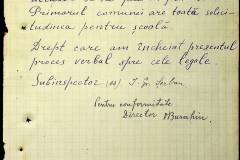 Primarul comunei are toată solici-
tudinea pentru școală.
Drept care am încheiat prezentul
proces verbal spre cele legale.
Subinspector (ss) I. Gr.
Pentru conformitate
Director